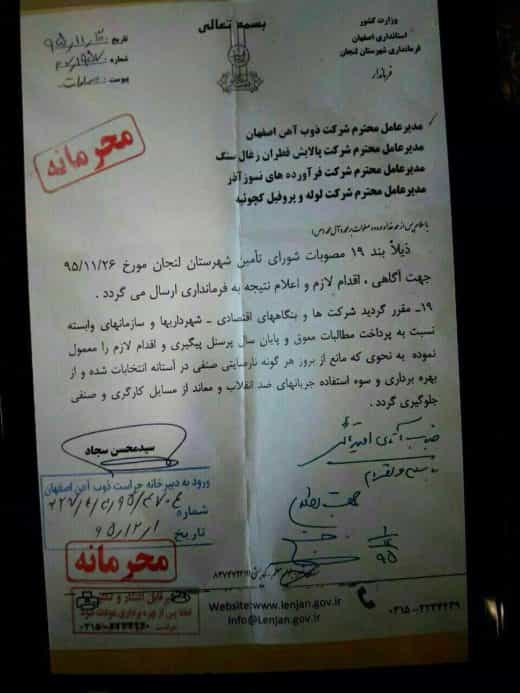 بسمه تعالی
وزارت کشور
استانداری اصفهان
فرمانداری شهرستان لنجان
فرماندار
تاریخ:
شماره:
پیوست:
محرمانه
مدیرعامل محترم شرکت ذوب آهن اصفهان
مدیرعامل محترم شرکت پالایش قطران زغال سنگ
مدیرعامل محترم شرکت فرآورده های نسوز آذر
مدیرعامل محترم شرکت لوله و پروفیل کچوئیه
ذیلاً بند ۱۹ مصوبات شورای تأمین شهرستان لنجان مورخ ۹۵/۱۱/۲۶
جهت آگاهی ، اقدام لازم و اعلام نتیجه به فرمانداری ارسال می گردد .
۱۹ـ مقرر گردید شرکت ها و بنگاههای اقتصادی ـ شهرداریها و سازمانهای وابسته
نسبت به پرداخت مطالبات معوق و پایان سال پرسنل پیگیری و اقدام لازم را معمول
نموده به نحوی که مانع از بروز هر گونه نارضایتی صنفی در آستانه انتخابات شده و از
بهره برداری و سوء استفاده جریانهای ضد انقلاب و معاند از مسایل کارگری و صنفی
جلوگیری گردد .
سیدمحسن سجاد
ورود به دبیرخانه حراست ذوب آهن اصفهان
شماره
تاریخ ۹۵/۱۲/۱
محرمانه
Website:www.lenjan.gov.ir
Info@Lenjan.gov.ir